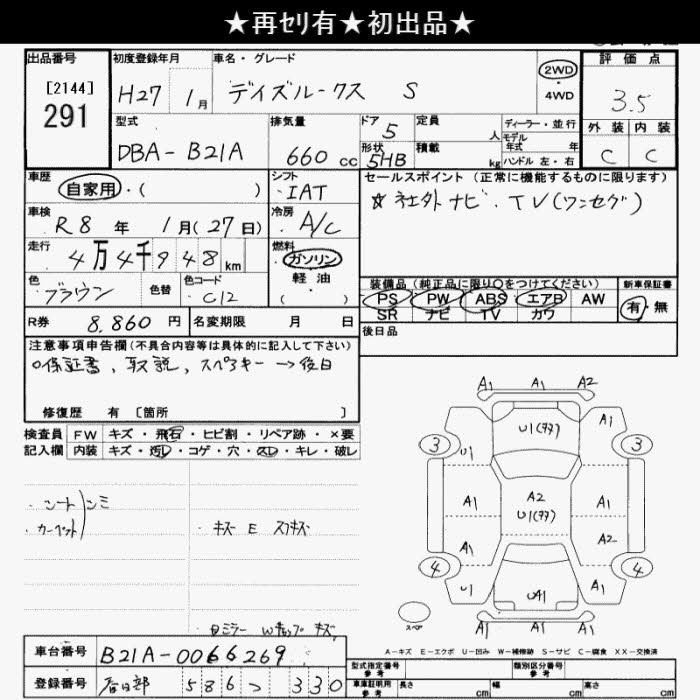 ★再セリ有★初出品★
出品番号 初度登録年月 車名・グレード 評価点
[2144]
291
H27 1月 デイズルークス S
2WD
4WD
3.5
型式 排気量 ドア 定員 ディーラー・並行 外装 内装
DBA-B21A 660cc 5 人 モデル年式 年 C C
形状 積載 kg ハンドル 左・右
5HB
車歴 シフト セールスポイント (正常に機能するものに限ります)
自家用・( ) IAT ☆社外ナビ・TV(ワンセグ)
車検 冷房
R8年 1月(27日) A/C
走行 燃料
4万4千948km ガソリン
軽油
( )
色 色替 色コード 装備品(純正品に限り○をつけてください) 新車保証書
ブラウン C12 PS PW ABS エアB AW 有・無
SR ナビ TV カワ
R券 8,860円 名変期限 月 日 後日品
注意事項申告欄(不具合内容等は具体的に記入して下さい)
○保証書、取説、スペアキー→後日
修復歴 有 〔箇所 〕
検査員 FW キズ・飛石・ヒビ割・リペア跡・×要
記入欄 内装 キズ・汚レ・コゲ・穴・スレ・キレ・破レ
・シート シミ
・カーペット
・キズ E スリキズ
A1 A1 A2
U1(ｱｱ) A1
3 3
U1
A1 A2 A1
U1(ｱｱ)
A1 A2
4 4
U1 UA1 A1
スペア
A1 A1 A1
車台番号 B21A-0066269
A-キズ E-エクボ U-凹み W-補修跡 S-サビ C-腐食 XX-交換済
登録番号 春日部 586 つ 330
型式指定番号 参考 類別区分番号 参考
車庫証明用 参考 長さ cm 幅 cm 高さ cm